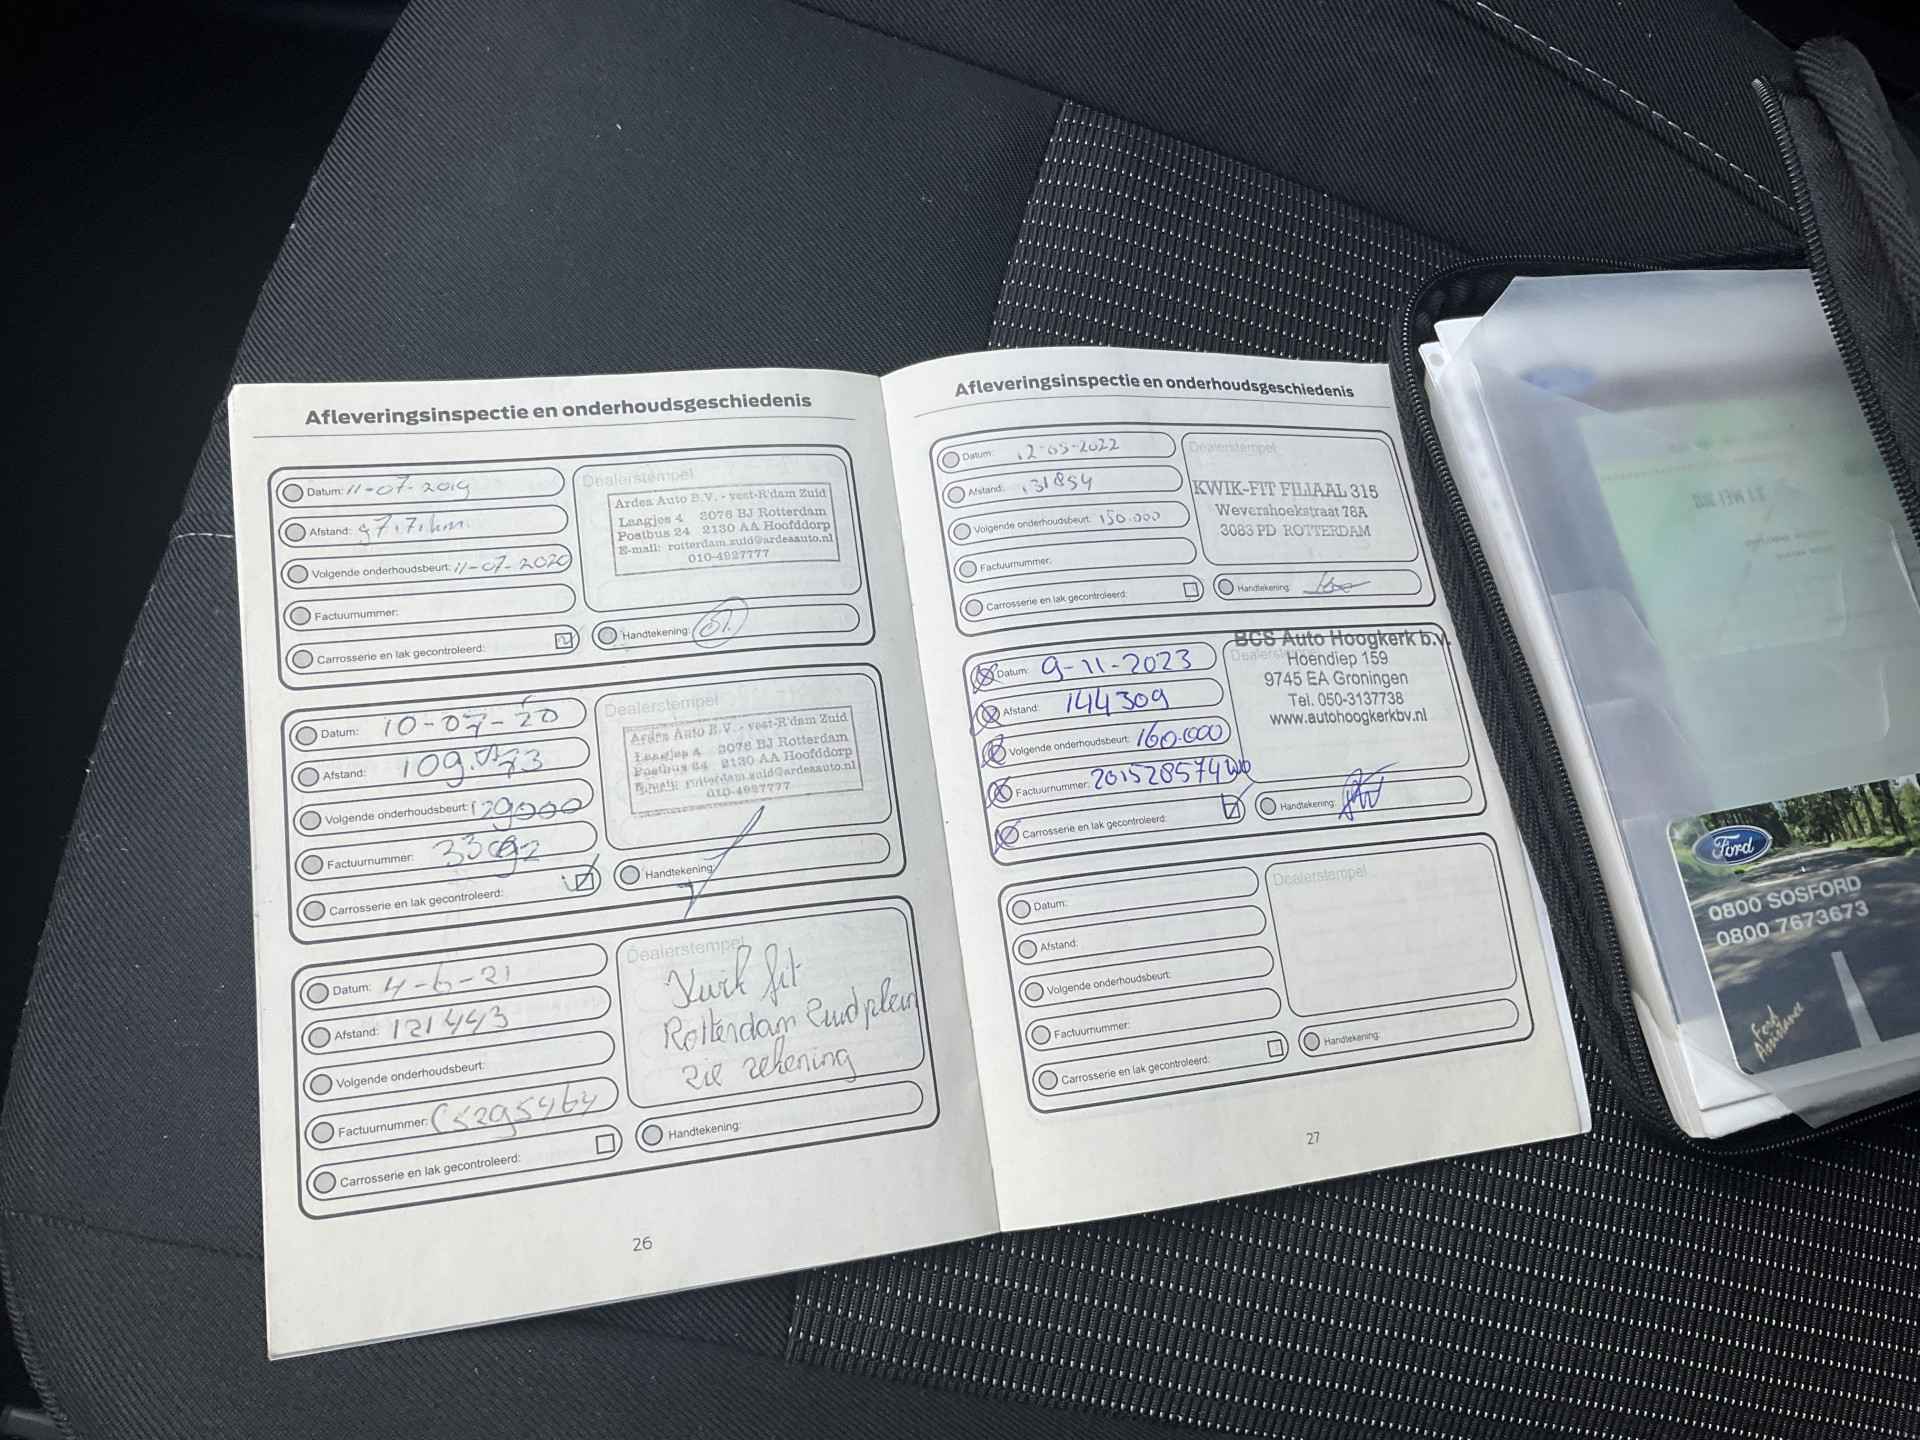 Afleveringsinspectie en onderhoudsgeschiedenis
Datum: 11-07-2019
Afstand:
Volgende onderhoudsbeurt: 11-07-2020
Factuurnummer:
Carrosserie en lak gecontroleerd:
Dealerstempel
Ardea Auto B.V. - vest-R'dam Zuid
Laagjes 4 3076 BJ Rotterdam
Postbus 24 2130 AA Hoofddorp
E-mail: rotterdam.zuid@ardeaauto.nl
010-4927777
Handtekening:
Datum: 10-07-20
Afstand:
Volgende onderhoudsbeurt: 129000
Factuurnummer:
Carrosserie en lak gecontroleerd:
Dealerstempel
Ardea Auto B.V. - vest-R'dam Zuid
Laagjes 4 3076 BJ Rotterdam
Postbus 24 2130 AA Hoofddorp
E-mail: rotterdam.zuid@ardeaauto.nl
010-4927777
Handtekening:
Datum: 4-6-21
Afstand: 121443
Volgende onderhoudsbeurt:
Factuurnummer:
Carrosserie en lak gecontroleerd:
Dealerstempel
Kwik fit
Rotterdam Zuidplein
zie rekening
Handtekening:
26
Afleveringsinspectie en onderhoudsgeschiedenis
Datum: 12-05-2022
Afstand: 131854
Volgende onderhoudsbeurt: 150.000
Factuurnummer:
Carrosserie en lak gecontroleerd:
Dealerstempel
KWIK-FIT FILIAAL 315
Wevershoekstraat 78A
3083 PD ROTTERDAM
Handtekening:
Datum: 9-11-2023
Afstand: 144309
Volgende onderhoudsbeurt: 160.000
Factuurnummer: 201528574WO
Carrosserie en lak gecontroleerd:
Dealerstempel
BCS Auto Hoogkerk b.v.
Hoendiep 159
9745 EA Groningen
Tel. 050-3137738
www.autohoogkerkbv.nl
Handtekening:
Datum:
Afstand:
Volgende onderhoudsbeurt:
Factuurnummer:
Carrosserie en lak gecontroleerd:
Dealerstempel
Handtekening:
27
Ford
0800 SOSFORD
0800 7673673
Ford
Assistance